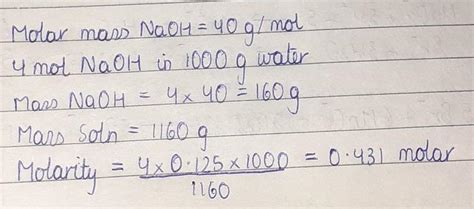 Molar mass NaOH = 40 g/mol
4 mol NaOH in 1000 g water
Mass NaOH = 4 x 40 = 160g
Mass Soln = 1160 g
Molarity = 4 x 0.125 x 1000 = 0.431 molar
1160